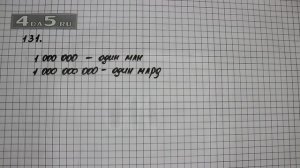 4DA5.RU
131.
1 000 000 – один млн
1 000 000 000 – один млрд